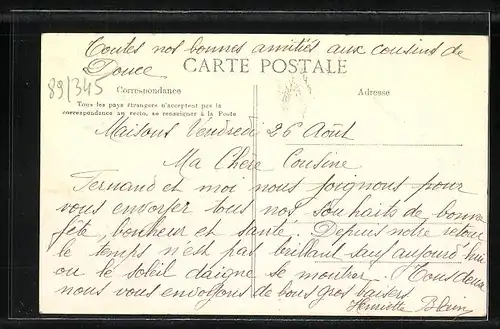 Toutes nos bonnes amitiés aux cousins de
Douce
CARTE POSTALE
89/345
Correspondance
Adresse
Tous les pays étrangers n'acceptent pas la
correspondance au recto, se renseigner à la Poste
Maisons Vendredi 26 Août
Ma Chère Cousine
Fernand et moi nous joignons pour
vous envoyer tous nos souhaits de bonne
fête, bonheur et santé. Depuis notre retour
le temps n'est pas brillant sauf aujourd'hui
ou le soleil daigne se montrer. Tous deux
nous vous envoyons de bons gros baisers
Henriette